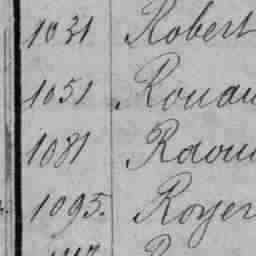 1031 Robert
1051 Rouau
1081 Raou
1095. Royer